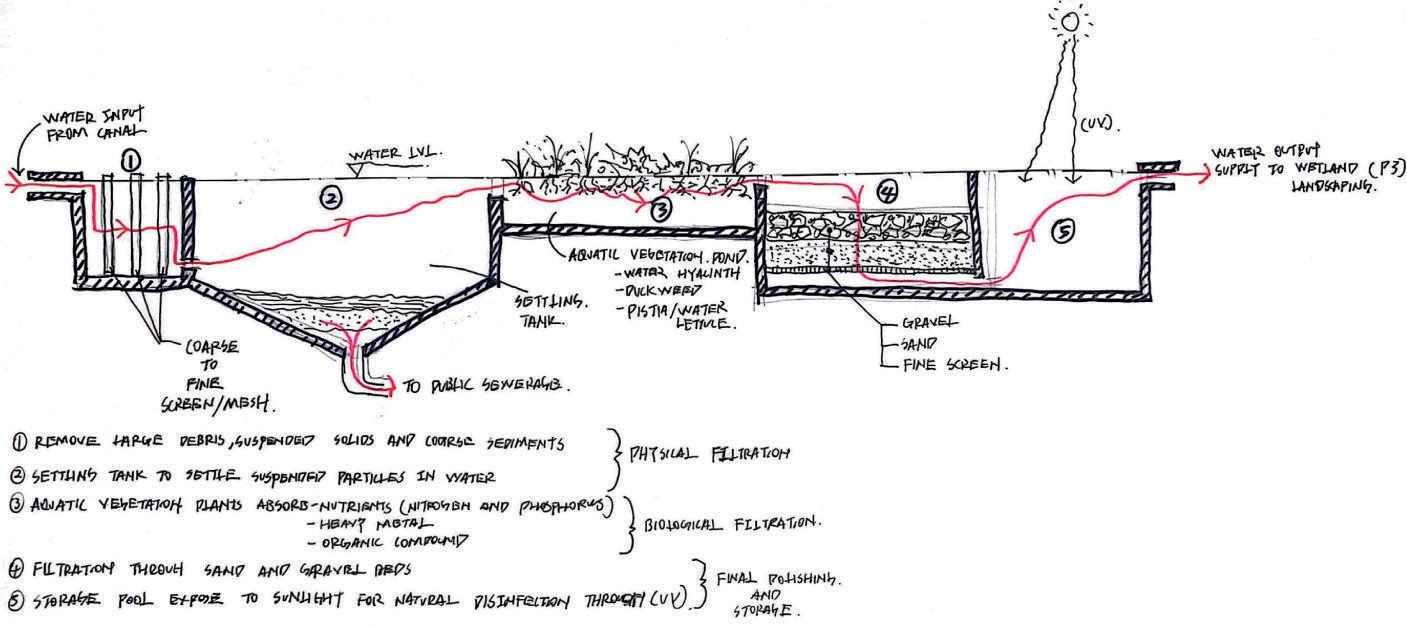 WATER INPUT
FROM CANAL
①
WATER LVL.
②
③
④
(UV).
WATER OUTPUT
SUPPLY TO WETLAND (P3)
LANDSCAPING.
⑤
AQUATIC VEGETATION. POND.
- WATER HYACINTH
- DUCKWEED
- PISTIA/WATER
LETTUCE.
SETTLING.
TANK.
GRAVEL
SAND
FINE SCREEN.
COARSE
TO
FINE
SCREEN/MESH.
TO PUBLIC SEWERAGE.
① REMOVE LARGE DEBRIS, SUSPENDED SOLIDS AND COARSE SEDIMENTS
② SETTLING TANK TO SETTLE SUSPENDED PARTICLES IN WATER
PHYSICAL FILTRATION
③ AQUATIC VEGETATION PLANTS ABSORB - NUTRIENTS (NITROGEN AND PHOSPHORUS)
- HEAVY METAL
- ORGANIC COMPOUND
BIOLOGICAL FILTRATION.
④ FILTRATION THROUGH SAND AND GRAVEL BEDS
⑤ STORAGE POOL EXPOSE TO SUNLIGHT FOR NATURAL DISINFECTION THROUGH (UV).
FINAL POLISHING.
AND
STORAGE.